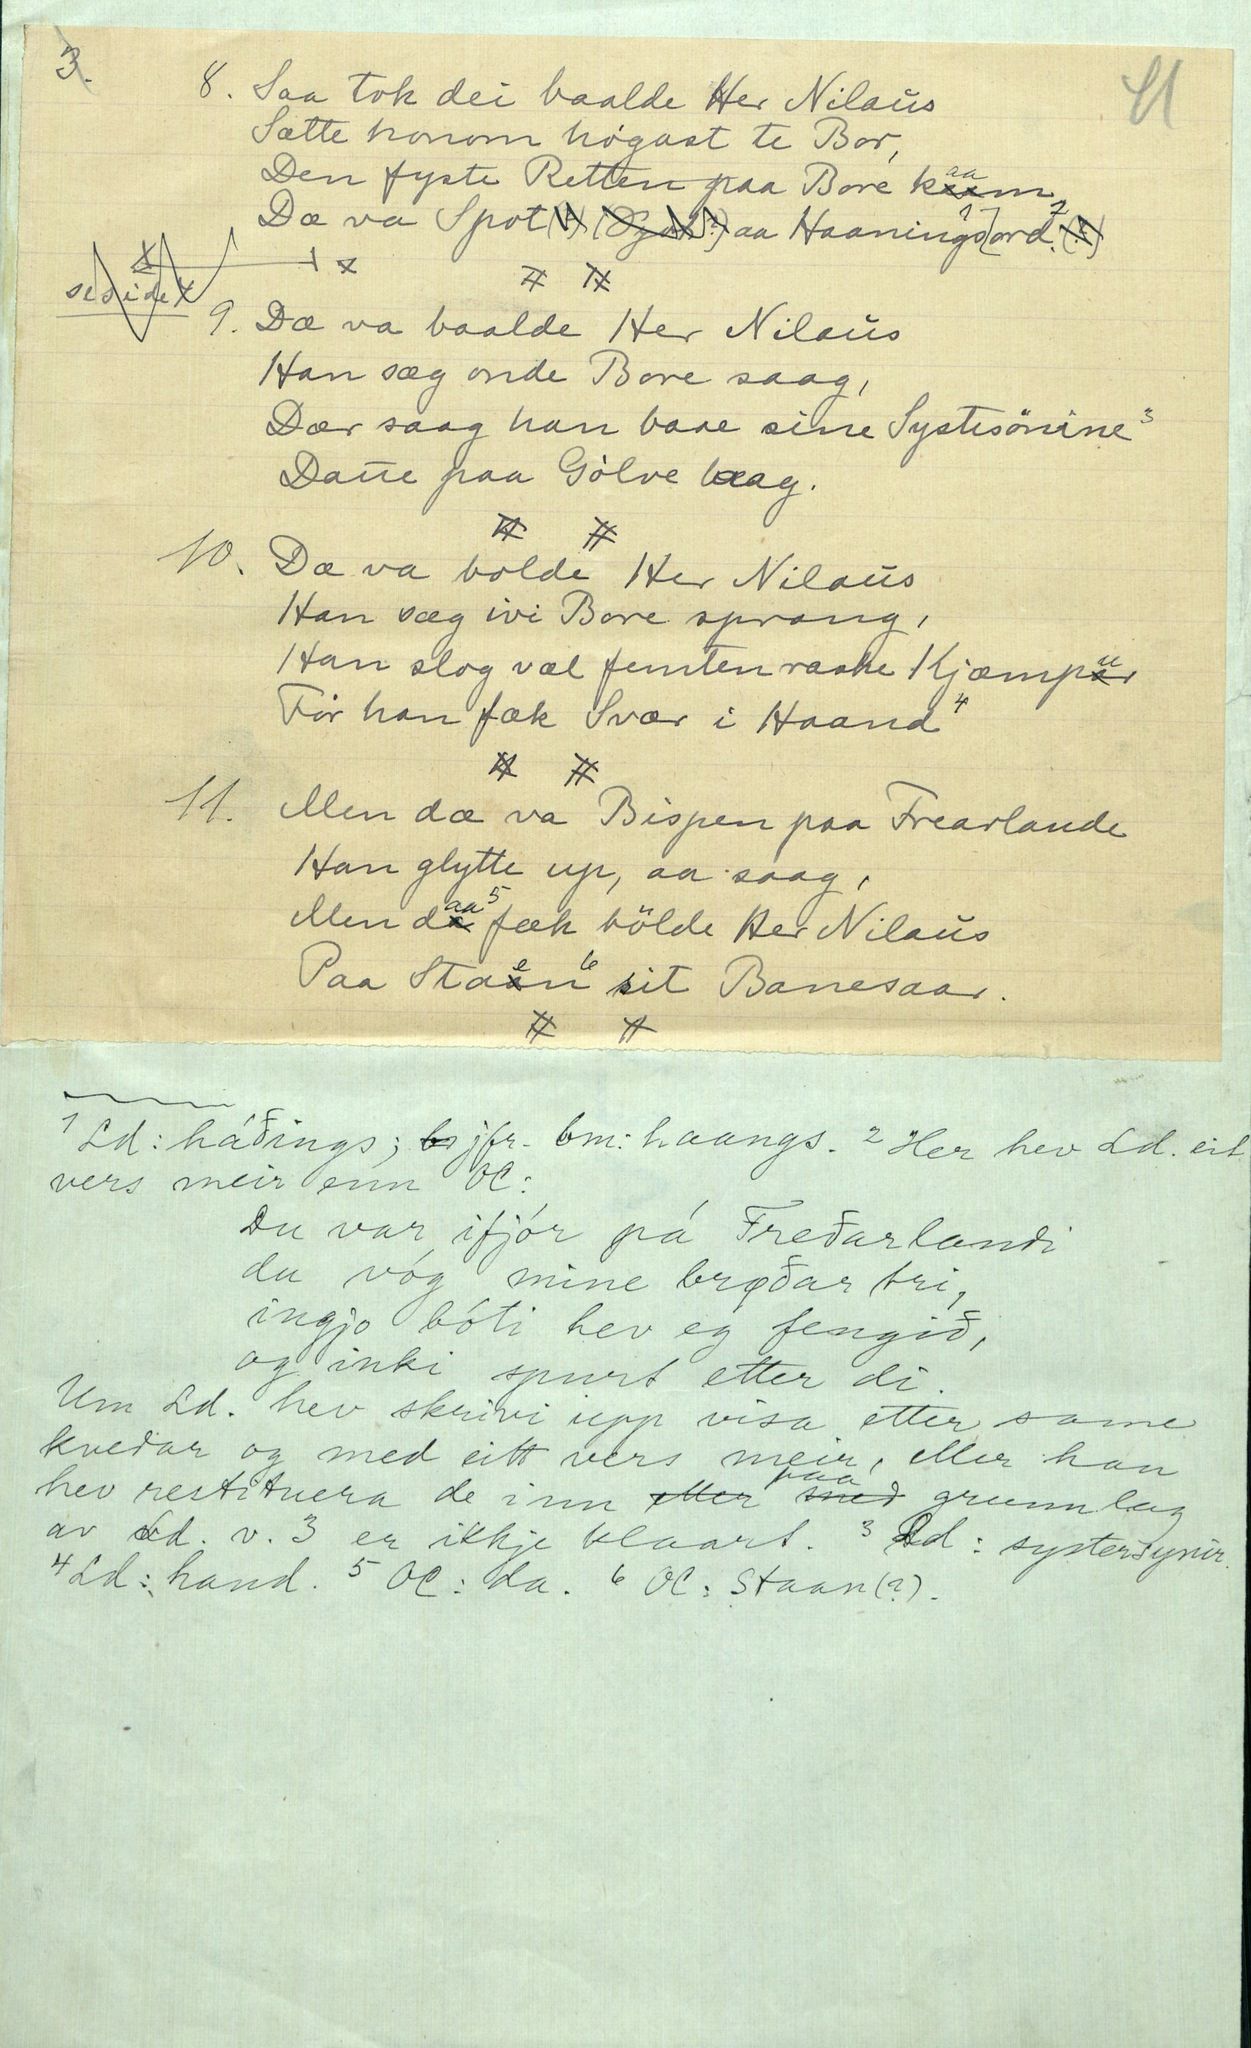 3. 41
8. Saa tok dei baalde Her Nilaŭs
Sætte honom högast te Bor,
Den fyste Retten paa Bore kaam
Dæ va Spot aa Haanings[1]ord.2
se side
9. Dæ va baalde Her Nilaŭs
Han sæg onde Bore saag,
Dær saag han bare sine Systesönine3
Daue paa Gólve laag.
10. Dæ va bolde Her Nilaŭs
Han sæg ivi Bore sprang,
Han slog væl femten raske Kjæmpur
För han fæk Svær i Haand4
11. Men dæ va Bispen paa Frearlande
Han glytte up, aa saag,
Men daa5 fæk bölde Her Nilaŭs
Paa Staen6 sit Banesaar.
1 Ld: háðings; jfr. bm: haangs. 2 Her hev Ld. eit
vers meir enn OC:
Du var ifjór pá Freðarlandi
du vóg mine brøðar tri,
ingjo bóti hev eg fengið,
og inki spurt etter di.
Um Ld. hev skrivi upp visa etter same
kvedar og med eitt vers meir, eller han
hev restituera de inn paa grunnlag
av Ld. v. 3 er ikkje klaart. 3 Ld: systersynir.
4 Ld: hand. 5 OC: da. 6 OC: Staan(?).